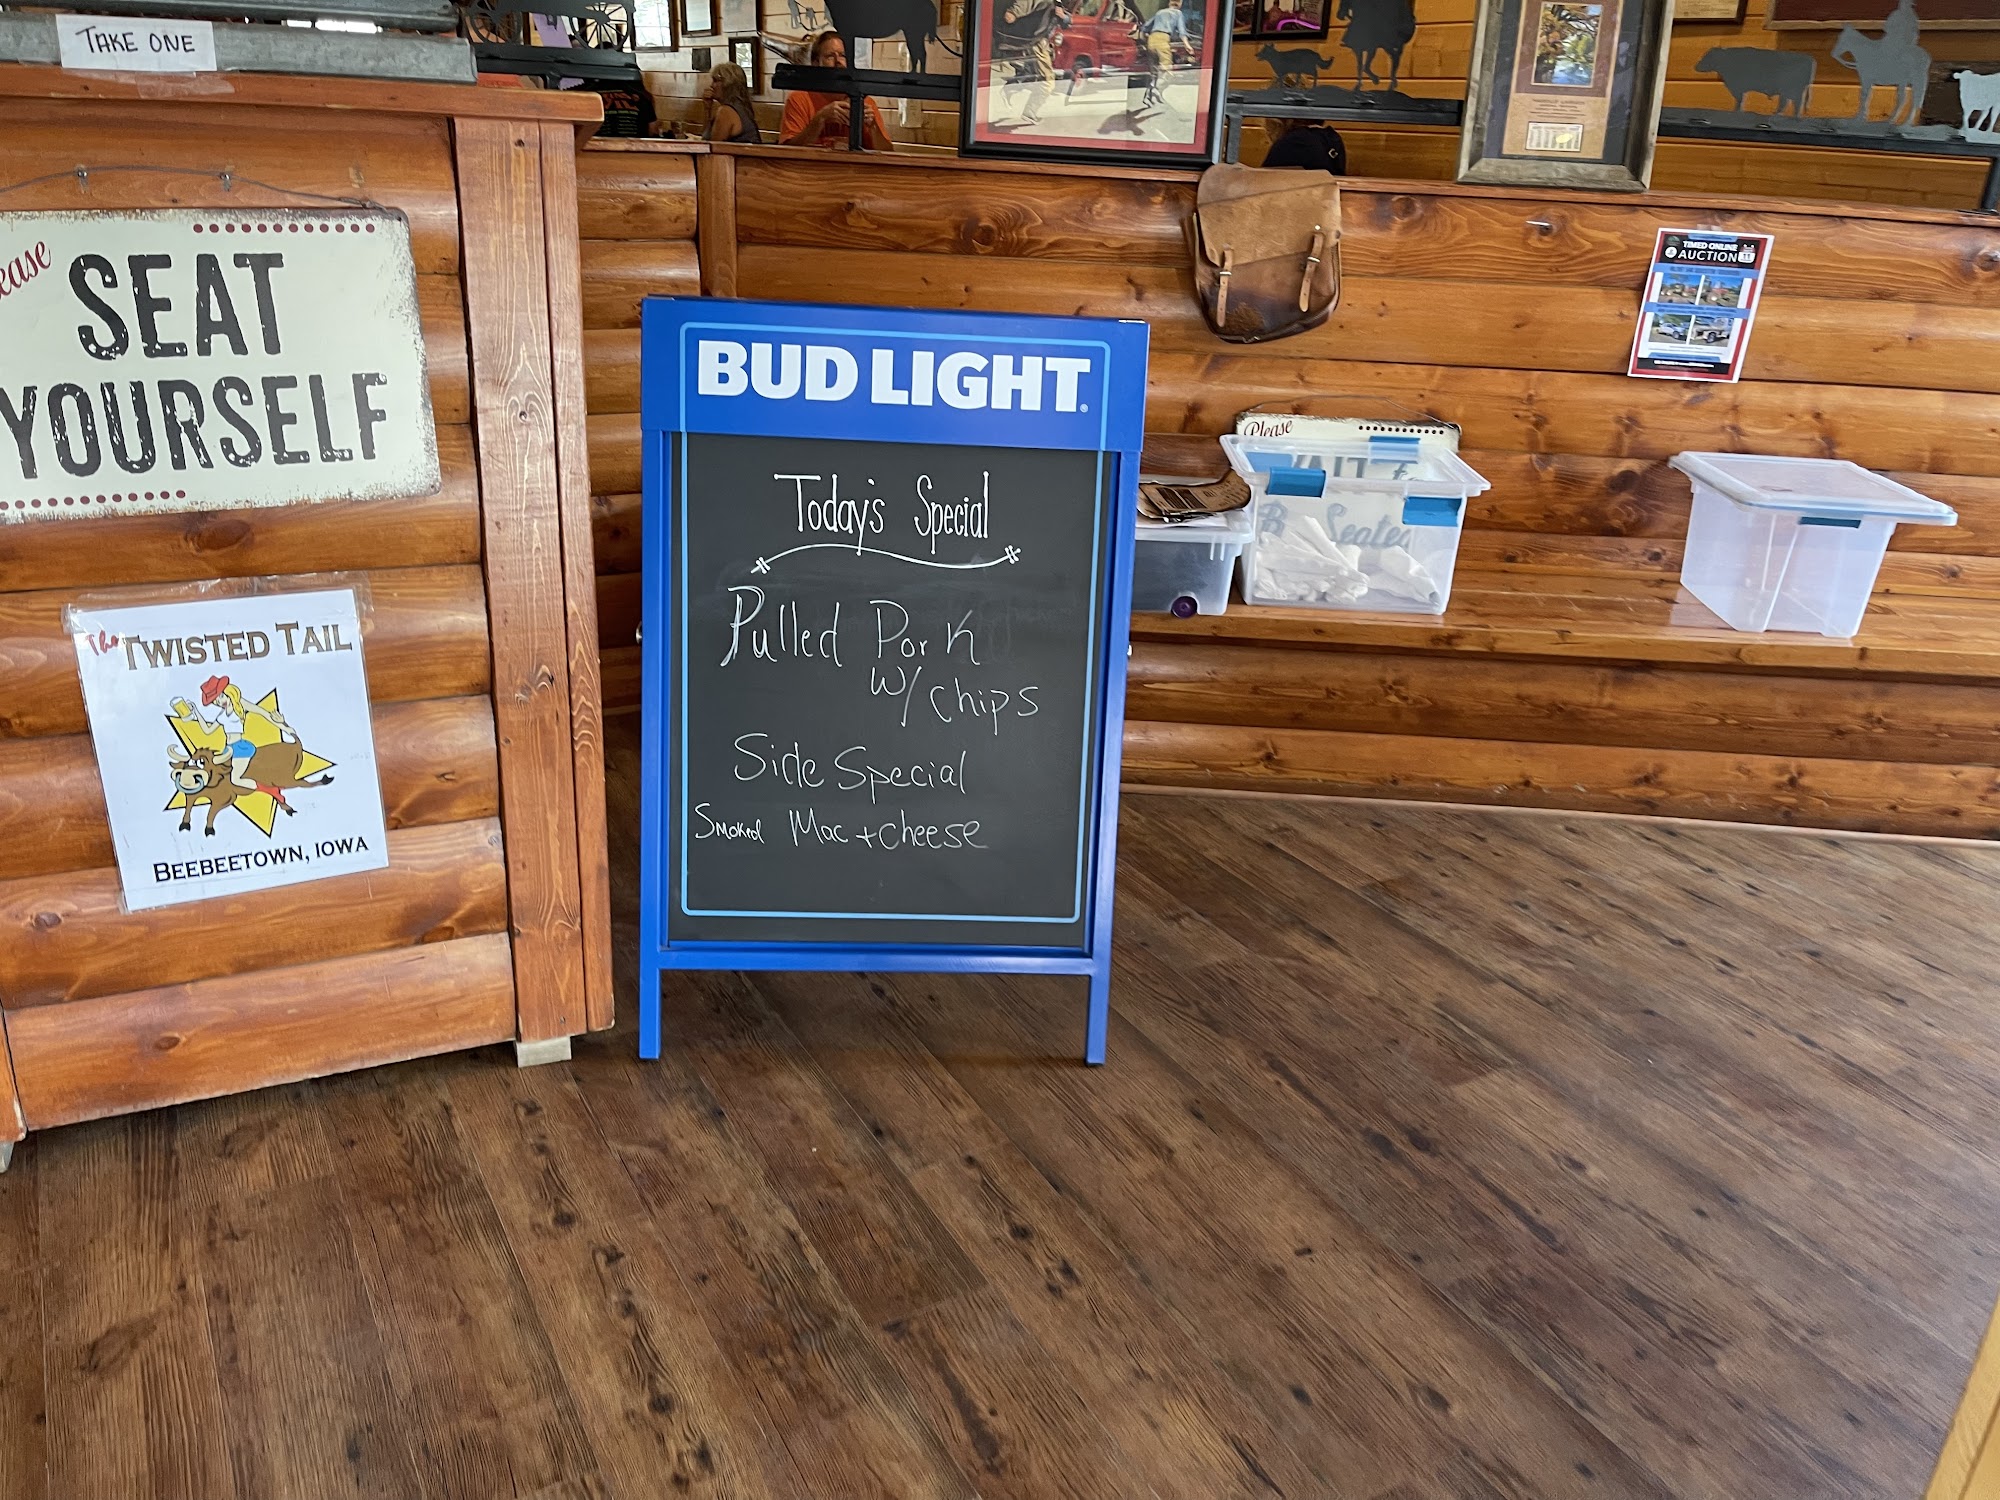 TAKE ONE
Please
SEAT
YOURSELF
The TWISTED TAIL
BEEBEETOWN, IOWA
BUD LIGHT
Today's Special
Pulled Pork
w/ chips
Side Special
Smoked Mac + cheese
TIMED ONLINE
AUCTION
Please
Be Seated